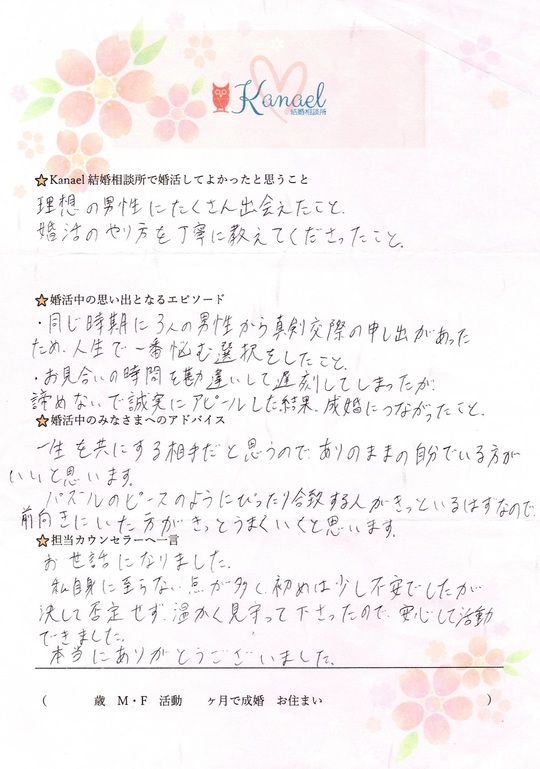 Kanael
結婚相談所
★Kanael 結婚相談所で婚活してよかったと思うこと
理想の男性にたくさん出会えたこと。
婚活のやり方を丁寧に教えてくださったこと。
★婚活中の思い出となるエピソード
・同じ時期に3人の男性から真剣交際の申し出があった
ため、人生で一番悩む選択をしたこと。
・お見合いの時間を勘違いして遅刻してしまったが、
諦めないで誠実にアピールした結果、成婚につながったこと。
★婚活中のみなさまへのアドバイス
一生を共にする相手だと思うので、ありのままの自分でいる方が
いいと思います。
パズルのピースのようにぴったり合致する人がきっといるはずなので、
前向きにいた方がきっとうまくいくと思います。
★担当カウンセラーへ一言
お世話になりました。
私自身に至らない点が多く、初めは少し不安でしたが
決して否定せず、温かく見守って下さったので、安心して活動
できました。
本当にありがとうございました。
( 歳 M・F 活動 ヶ月で成婚 お住まい )